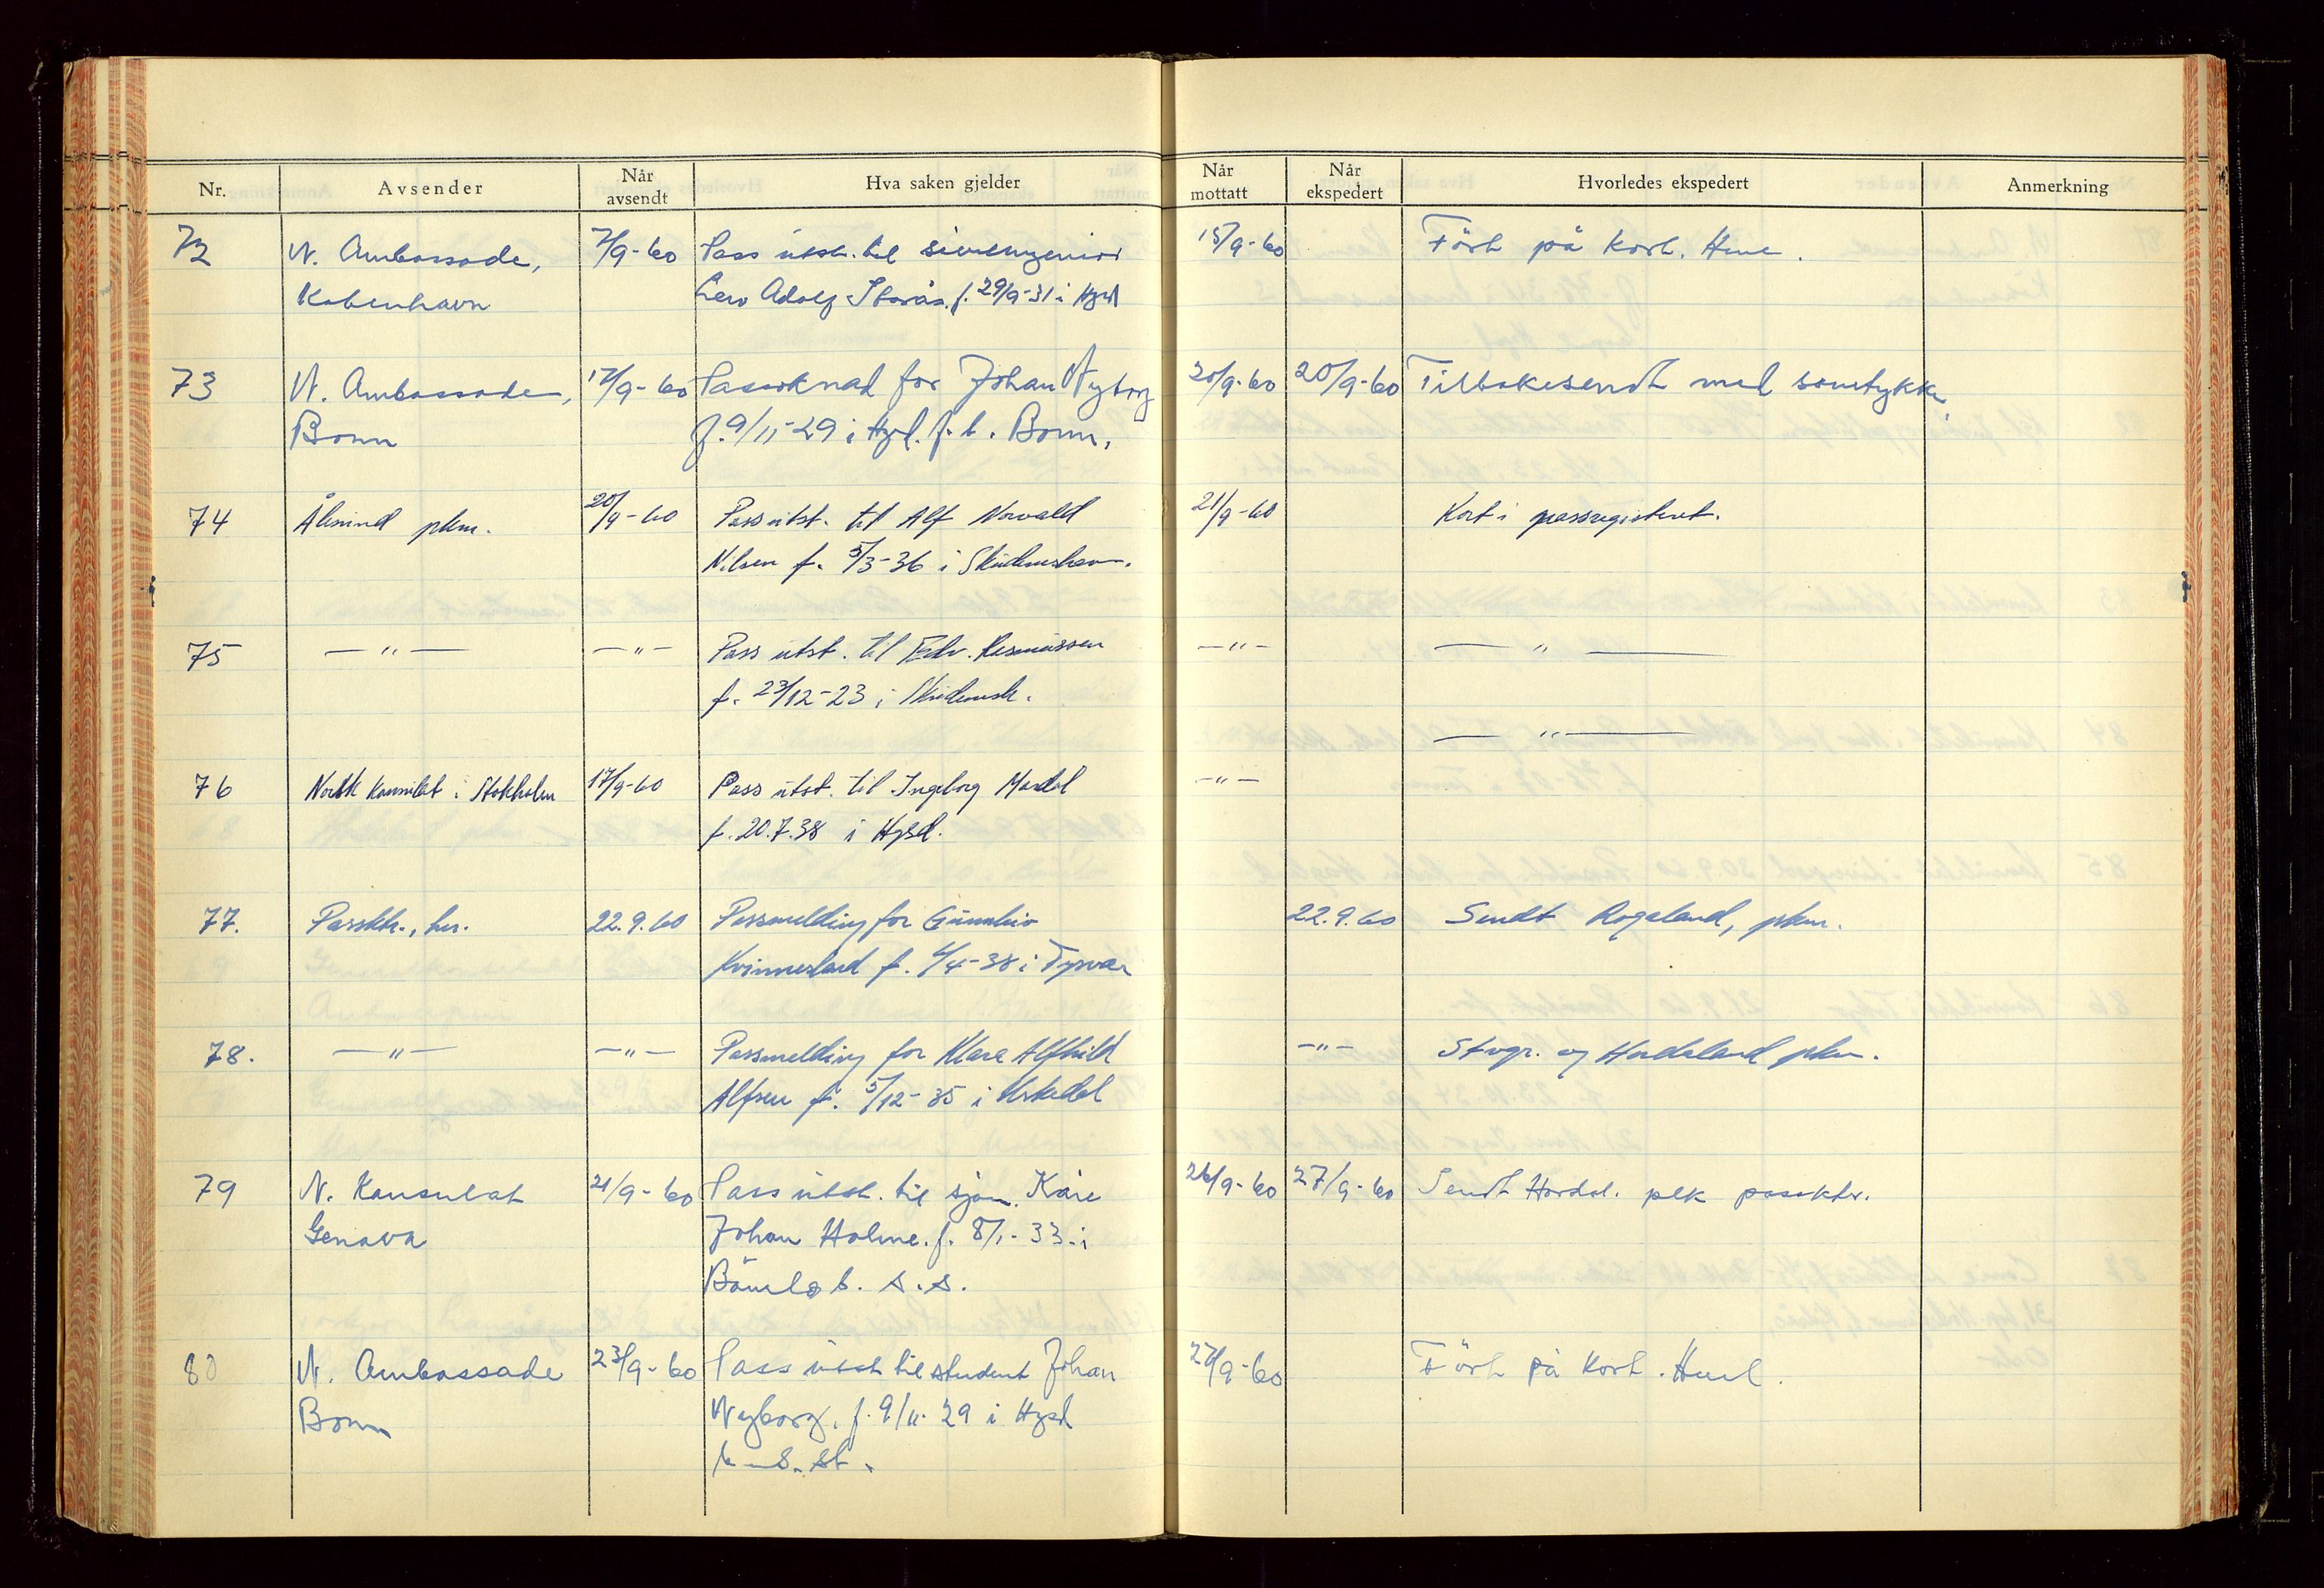 Nr. Avsender Når avsendt Hva saken gjelder Når mottatt Når ekspedert Hvorledes ekspedert Anmerkning
72 N. Ambassade, 7/9-60 Pass utst. til sivilingeniør 15/9-60 Ført på kort.
København Adolf f. 29/9-31 i Hgsd
73 N. Ambassade, 17/9-60 Passøknad for Johan Nyborg 20/9-60 20/9-60 Tilbakesendt med samtykke.
Bonn f. 9/11-29 i Hgsd. f. t. Bonn.
74 Ålesund pkm. 20/9-60 Pass utst. til Alf Norvald 21/9-60 Kort i passregisteret.
Nilsen f. 5/3-36 i Skudeneshavn.
75 — " — — " — Pass utst. til Edv. Rasmussen — " — — " —
f. 23/12-23 i Skudenesh.
— " —
76 Norsk Konsulat i Stokholm 17/9-60 Pass utst. til Ingeborg — " —
f. 20.7.38 i Hgsd.
77. Passktr., her. 22.9.60 Passmelding for 22.9.60 Sendt Rogaland, pkm.
Kvinnesland f. /4-38 i Tysvær
78. — " — — " — Passmelding for Klara Alfhild — " — Stvgr. og Hordaland pkm.
Alfsen f. 5/12-35 i
79 N. Konsulat 21/9-60 Pass utst. til sjøm. Kåre 26/9-60 27/9-60 Sendt Hordal. plk passktr.
Genova Johan Holme. f. 8/1-33 i
Bömlo b. s. s.
80 N. Ambassade 23/9-60 Pass utst til student Johan 27/9-60 Ført på kort.
Bonn Nyborg. f. 9/11-29 i Hgsd